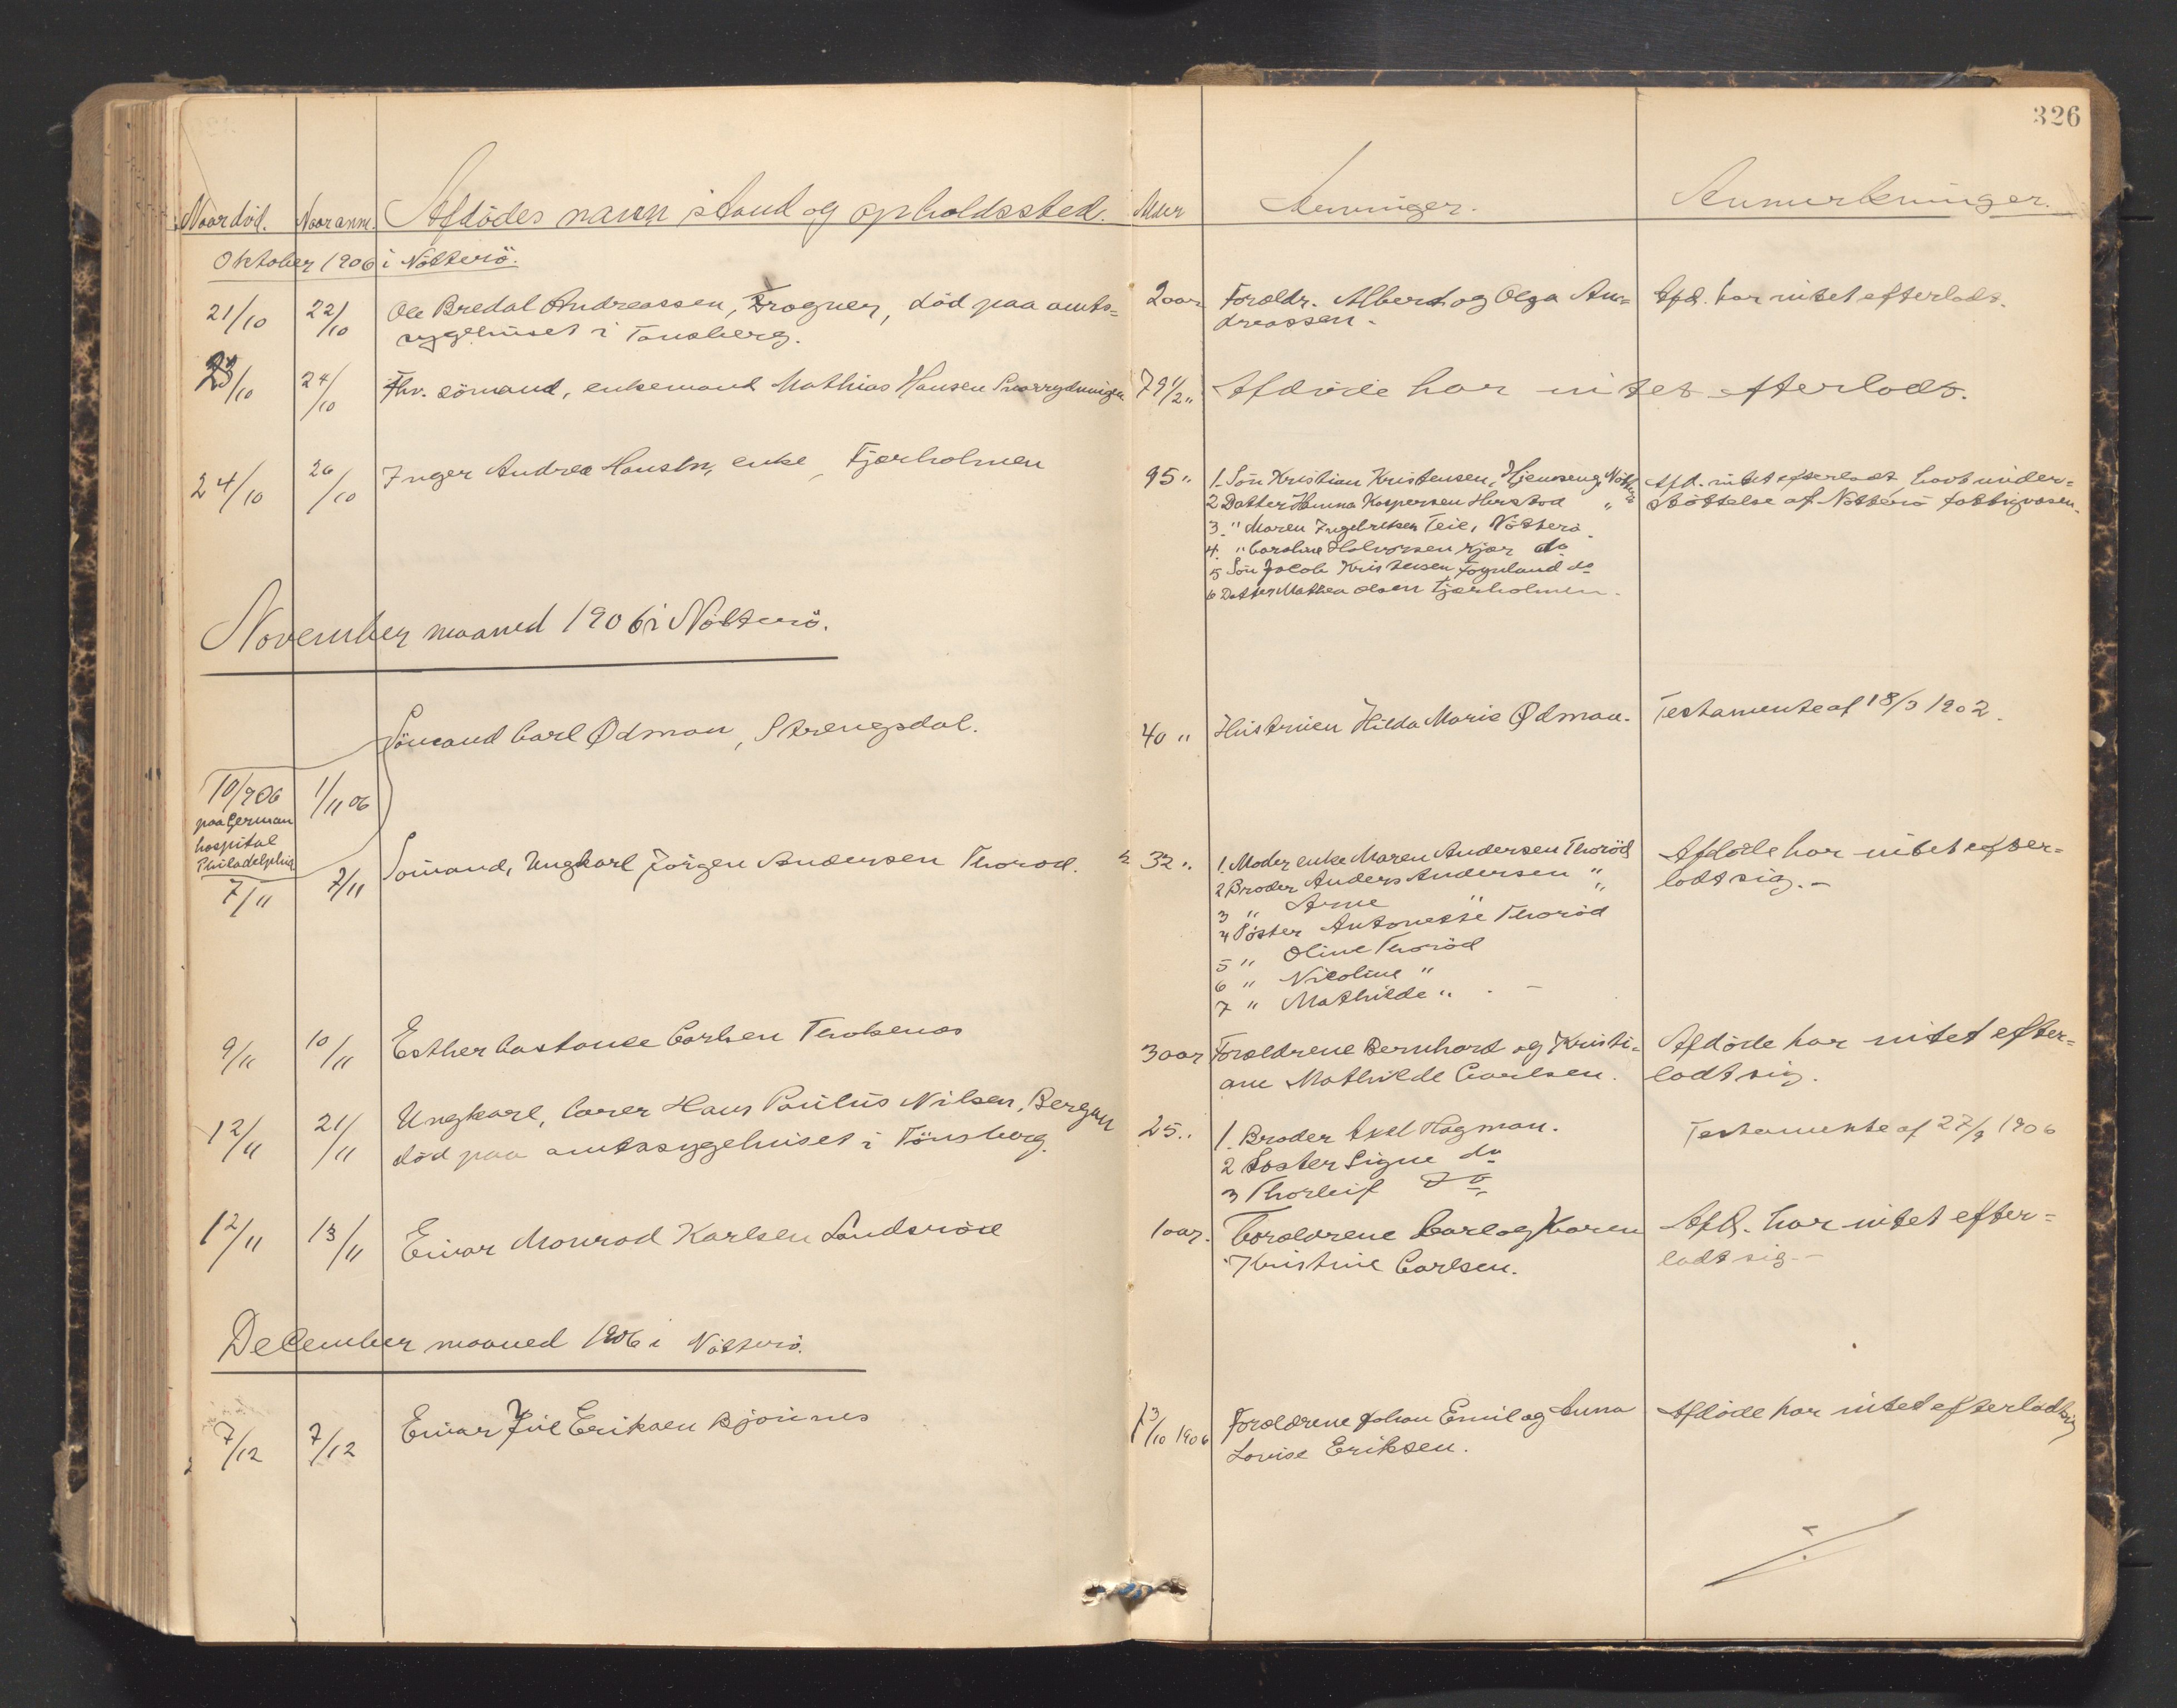 326
Naar död. Naar anm. Afdödes navn stand og opholdssted. Alder Arvinger. Anmerkninger.
Oktober 1906 i Nötterö.
21/10 22/10 Ole Bredal Andreassen, Frogner, död paa amts= 2 aar Foreldr. Albert og Olga An= Afd. har intet efterladt.
sygehuset i Tonsberg. dreassen.
23/10 24/10 Fhv. sömand, enkemand Mathias Hansen 79 1/2 " Afdöde har intet efterladt.
24/10 26/10 Inger Andrea Hansen, enke, Fjærholmen 95 " 1. Sön Kristian Kristensen, Hjemseng Nötterö Afd. intet efterladt, havt under=
2 Datter Hanna Kaspersen Herstad " stöttelse af Nötterö fattigvæsen.
3. " Maren Ingebretsen Teie, Nötterö.
4. " Caroline Halvorsen Kjær do
5 Sön Jacob Kristensen Föynland do
6 Datter Mathea Olsen Fjærholmen.
November maaned 1906 i Nötterö.
Sömand Carl Ødman, Strengsdal. 40 " Hustruen Hilda Marie Ødman. Testamente af 18/3 1902.
10/9 06 1/11 06
paa German
hospital
Philadelphia
7/11 7/11 Sömand, Ungkarl Jörgen Andersen Thoröd. 32 " 1. Moder enke Maren Andersen Thoröd Afdöde har intet efter=
2 Broder Anders Andersen " ladt sig.-
3 " Arne " "
4 Söster Antonette Thoröd
5 " Oline Thoröd
6 " Nicoline "
7 " Mathilde " . -
9/11 10/11 Esther Constance Carlsen 3 aar Foreldrene Bernhard og Kristi= Afdöde har intet efter=
ane Mathilde Carlsen. ladt sig.
12/11 21/11 Ungkarl, lærer Hans Paulus Nilsen, Bergan 25 " 1. Broder Axel Hagman. Testamente af 27/9 1906
död paa amtssygehuset i Tönsberg. 2 Söster Signe do
3 Thorleif do
12/11 13/11 Einar Monrad Karlsen Sandsröd 1 aar. Foreldrene Carl og Karen Afd. har intet efter=
Kristine Carlsen. ladt sig-
December maaned 1906 i Nötterö.
7/12 7/12 Einar Juel Eriksen Bjönnes 13/10 1906 Foreldrene Johan Emil og Anna Afdöde har intet efterladt sig
Lovise Eriksen.